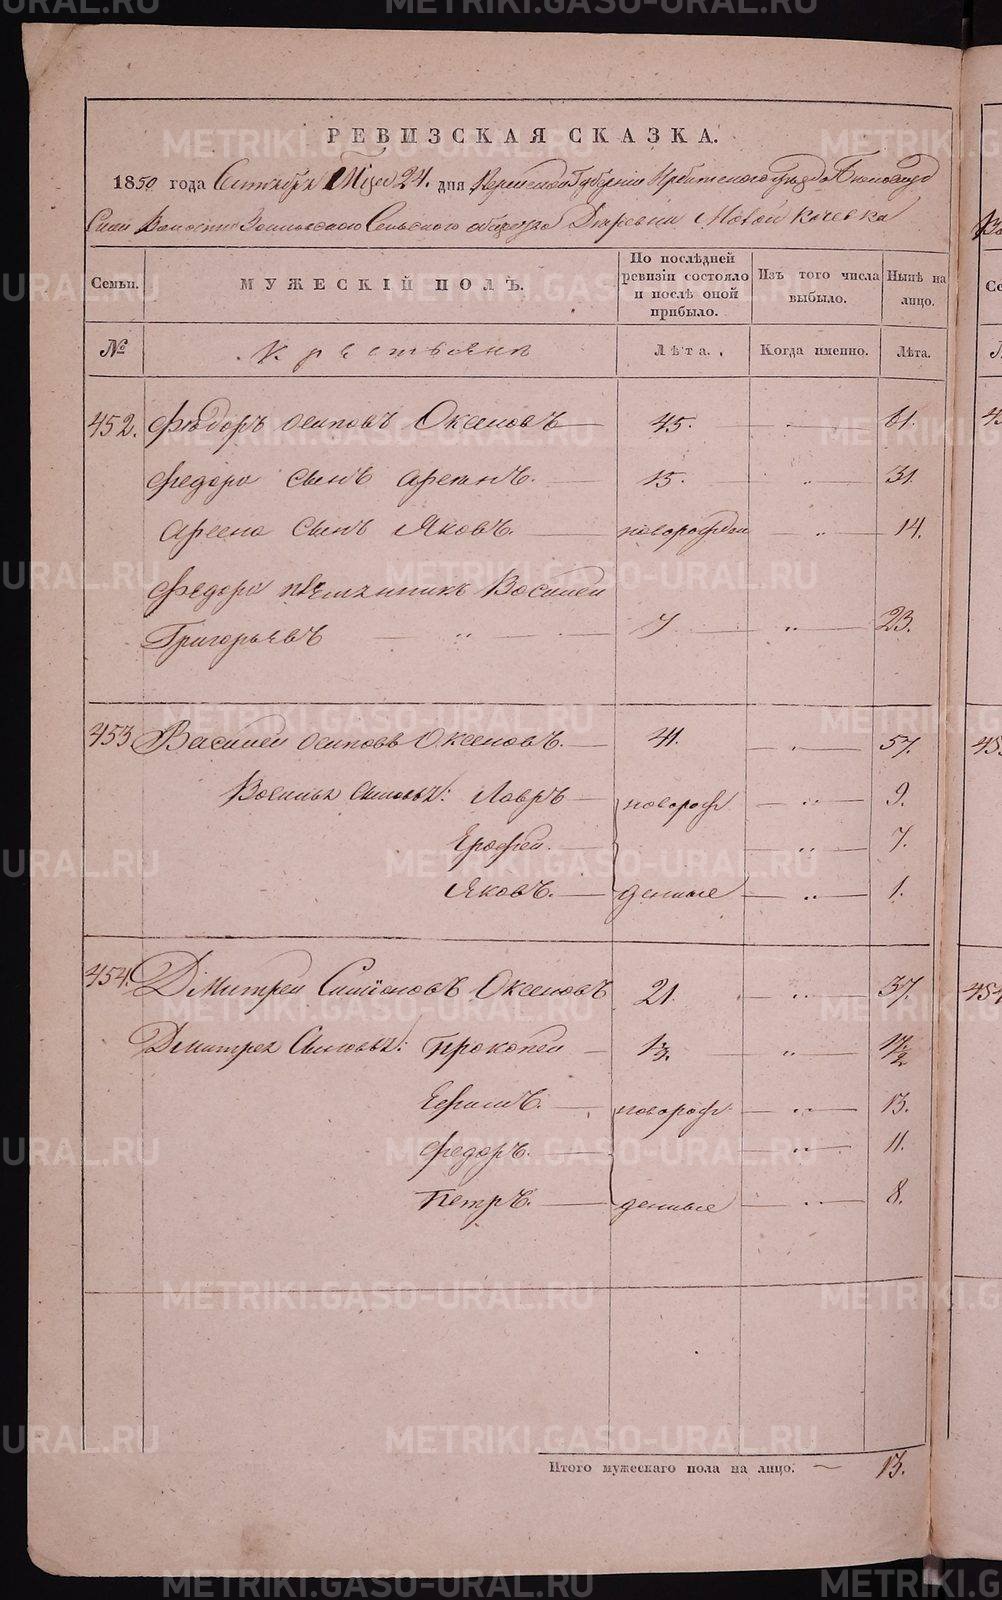 РЕВИЗСКАЯ СКАЗКА.
1850 года Сентября Мца 24. дня Пермской Губернiи Ирбитского уезда Белослуд
ской Волости Сельского общества Деревни Новой
Семьи. МУЖЕСКIЙ ПОЛЪ. По послѣдней ревизiи состояло и послѣ оной прибыло. Изъ того числа выбыло. Нынѣ на лицо.
№ Крестьяне Лѣта. Когда именно. Лѣта.
452. Фѣдоръ Осиповъ Оксеновъ 45. " 61.
Федора сынъ Арсенъ. 15. " 31.
Арсена сынъ Яковъ. новорожден " 14.
Федора племянникъ Василей
Григорьевъ " 7 " 23.
453 Василей Осиповъ Оксеновъ. 41. " 57.
Василья Сыновья: Лавръ новорож " 9.
Ерофей. " 7.
Яковъ. денные " 1.
454. Дмитрей Симионовъ Оксеновъ 21. " 37.
Дмитрея Сыновья: Прокопей "
Ефимъ. новорож " 13.
Федоръ. " 11.
Петръ. денные " 8.
Итого мужескаго пола на лицо. 13.
METRIKI.GASO-URAL.RU